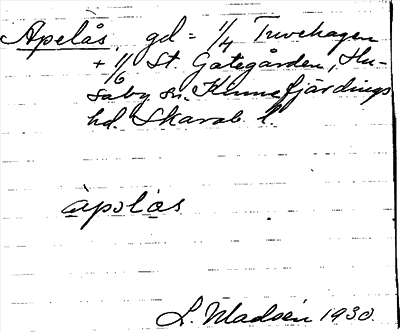 Apelås, gd = 1/4 Tuvehagen
+ 1/6 St. Gategården, Hu-
saby sn. Kinnefjärdings
hd. Skarab. l.
àpolås
L. Madsén 1930.